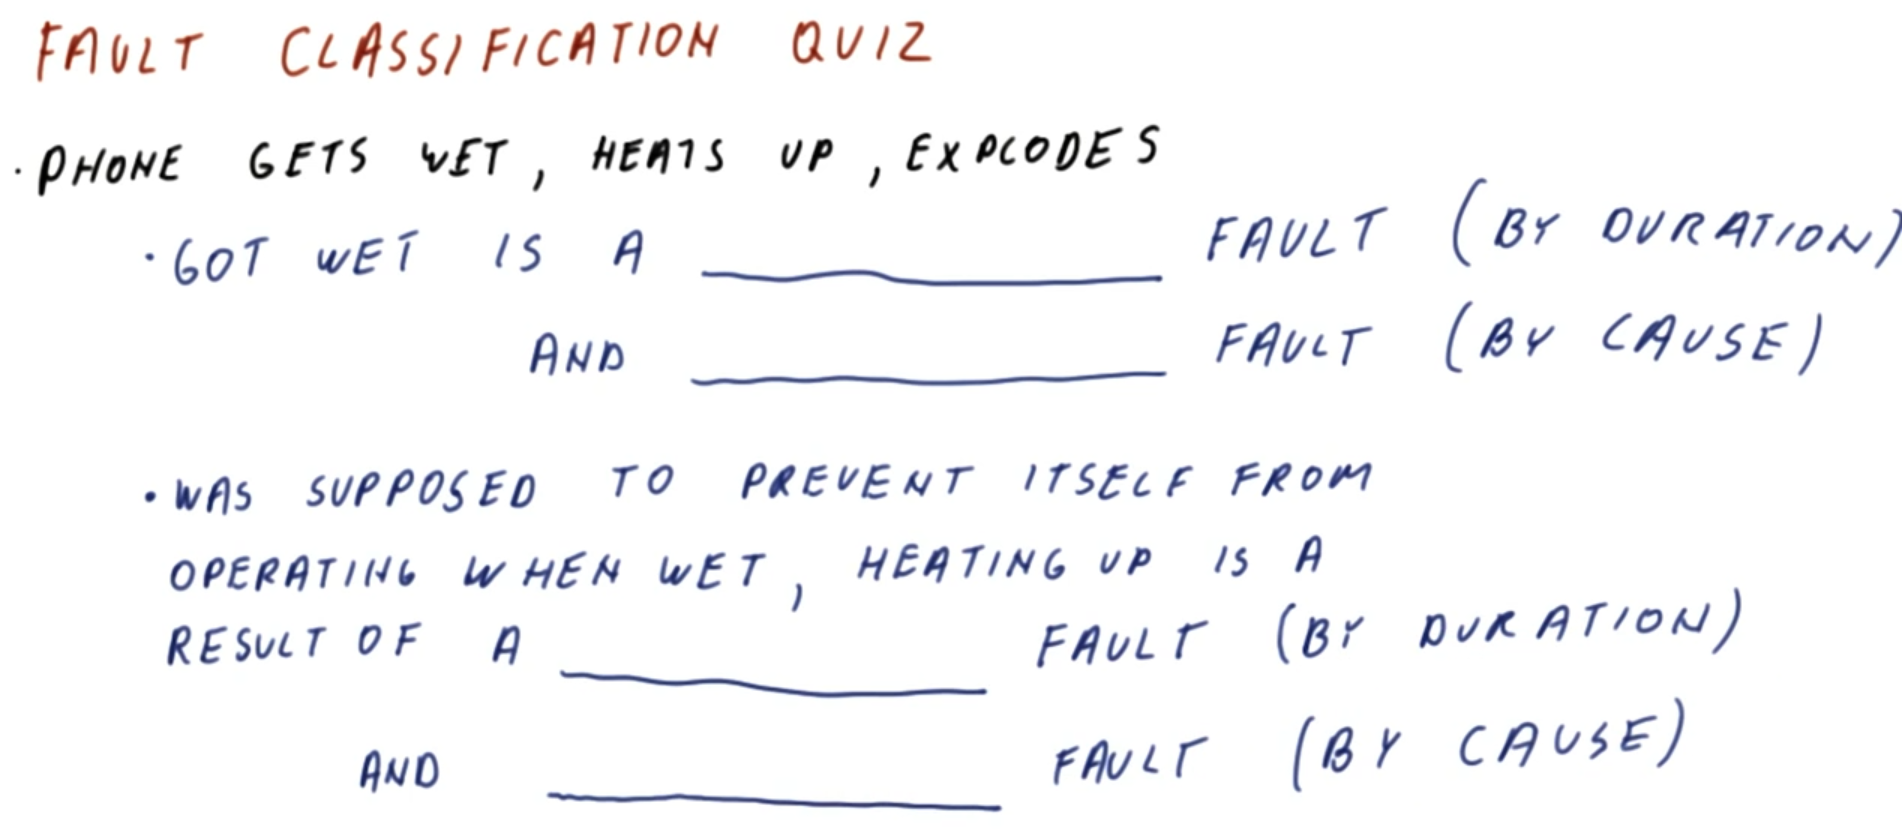 FAULT CLASSIFICATION QUIZ
· PHONE GETS WET, HEATS UP, EXPLODES
· GOT WET IS A ________ FAULT (BY DURATION)
AND ________ FAULT (BY CAUSE)
· WAS SUPPOSED TO PREVENT ITSELF FROM
OPERATING WHEN WET, HEATING UP IS A
RESULT OF A ________ FAULT (BY DURATION)
AND ________ FAULT (BY CAUSE)